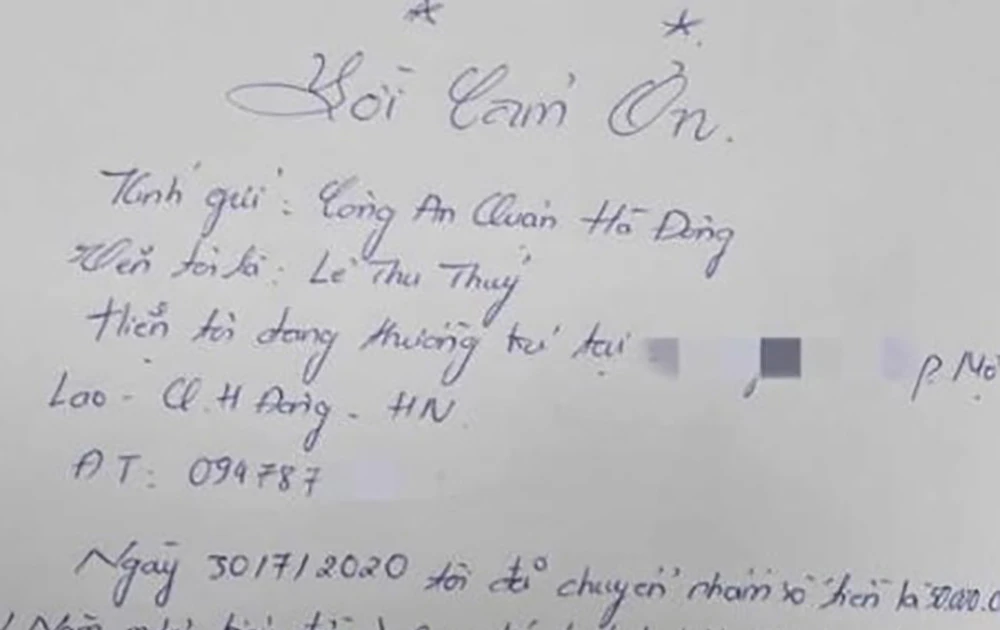 * *
Lời Cảm Ơn.
Kính gửi: Công An Quận Hà Đông
Tên tôi là: Lê Thu Thuỷ
Hiện tôi đang thường trú tại P. Mộ
Lao - Q. H Đông - HN.
ĐT: 094787
Ngày 30/7/2020 tôi đã chuyển nhầm số tiền là 50.000.0